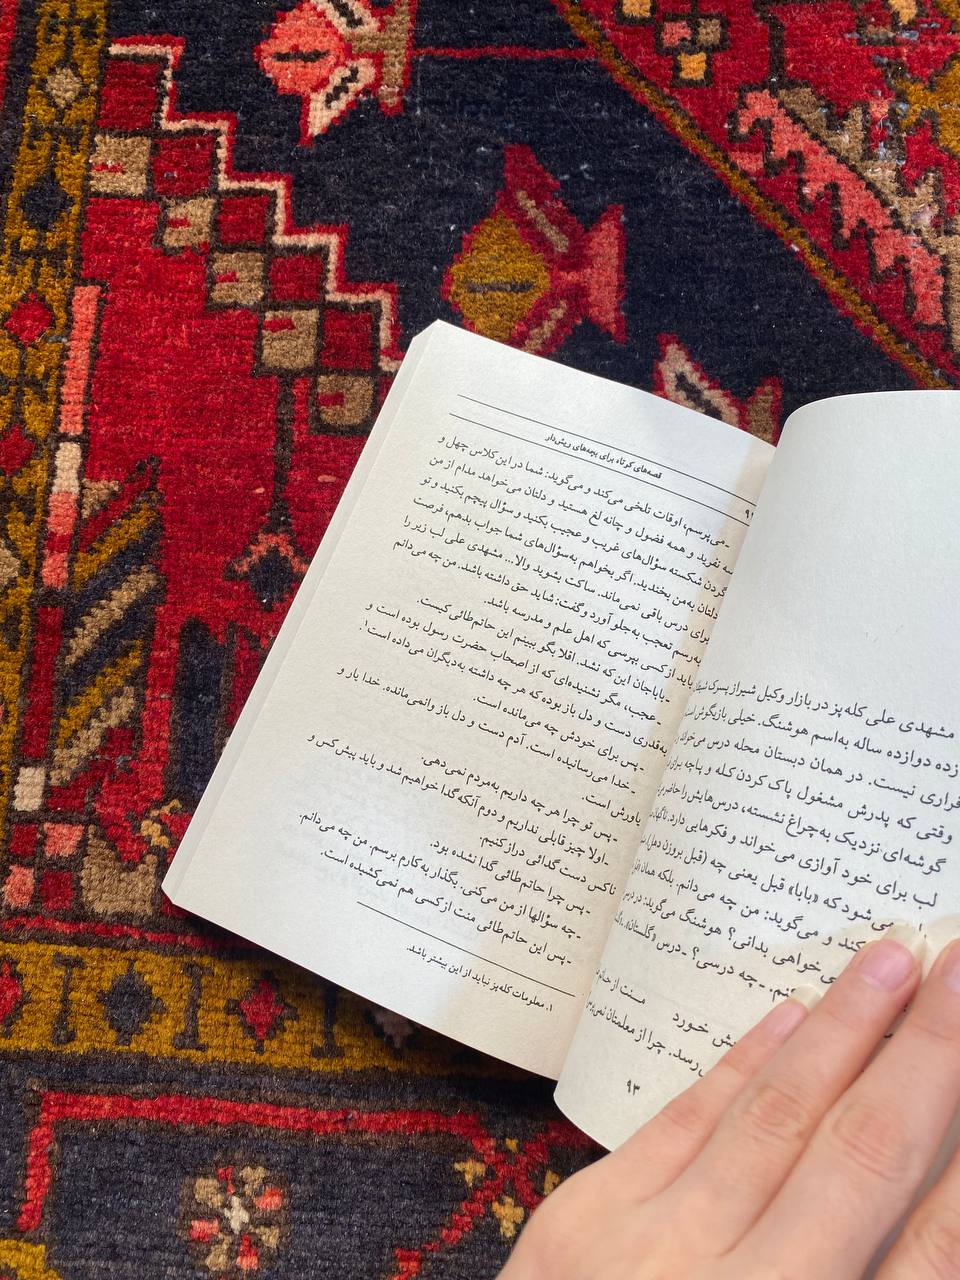 مشهدی علی کله‌پز در بازار وکیل شیراز پسرک
زده دوازده ساله به‌اسم هوشنگ. خیلی بازیگوش
فراری نیست. در همان دبستان محله درس می‌خواند
وقتی که پدرش مشغول پاک کردن کله و پاچه برای
گوشه‌ای نزدیک به‌چراغ نشسته، درس‌هایش را حاضر
لب برای خود آوازی می‌خواند و فکرهایی دارد.
می‌شود که «بابا» قبل یعنی چه (قبل بروزن دهل).
کند و می‌گوید: من چه می‌دانم. بلکه همان
خواهی بدانی؟ هوشنگ می‌گوید: در
کنم. ـ چه درسی؟ ـ درس «گلستان».
منت از
خورد
رسد. چرا از معلمتان
۹۳
قصه‌های کوتاه برای بچه‌های ریش‌دار
ـ می‌پرسم، اوقات تلخی می‌کند و می‌گوید: شما در این کلاس چهل و
سه نفرید و همه فضول و چانه لغ هستید و دلتان می‌خواهد مدام از من
گردن شکسته سؤال‌های غریب و عجیب بکنید و سؤال پیچم بکنید و تو
دلتان به‌من بخندید. اگر بخواهم به‌سؤال‌های شما جواب بدهم، فرصت
برای درس باقی نمی‌ماند. ساکت بشوید والا... مشهدی علی لب زیر را
به‌رسم تعجب به‌جلو آورد و گفت: شاید حق داشته باشد. من چه می‌دانم
باید از کسی بپرسی که اهل علم و مدرسه باشد.
ـ باباجان این که نشد. اقلا بگو ببینم این حاتم‌طائی کیست.
ـ عجب، مگر نشنیده‌ای که از اصحاب حضرت رسول بوده است و
به‌قدری دست و دل باز بوده که هر چه داشته به‌دیگران می‌داده است۱.
ـ پس برای خودش چه می‌مانده است.
ـ خدا می‌رسانیده است. آدم دست و دل باز وانمی‌مانده. خدا یار و
یاورش است.
ـ پس تو چرا هر چه داریم به‌مردم نمی‌دهی.
ـ اولا چیز قابلی نداریم و دوم آنکه گدا خواهیم شد و باید پیش کس و
ناکس دست گدائی دراز کنیم.
ـ پس چرا حاتم‌طائی گدا نشده بود.
ـ چه سؤالها از من می‌کنی. بگذار به‌کارم برسم. من چه می‌دانم.
ـ پس این حاتم‌طائی منت از کسی هم نمی‌کشیده است.
۱. معلومات کله‌پز نباید از این بیشتر باشد.